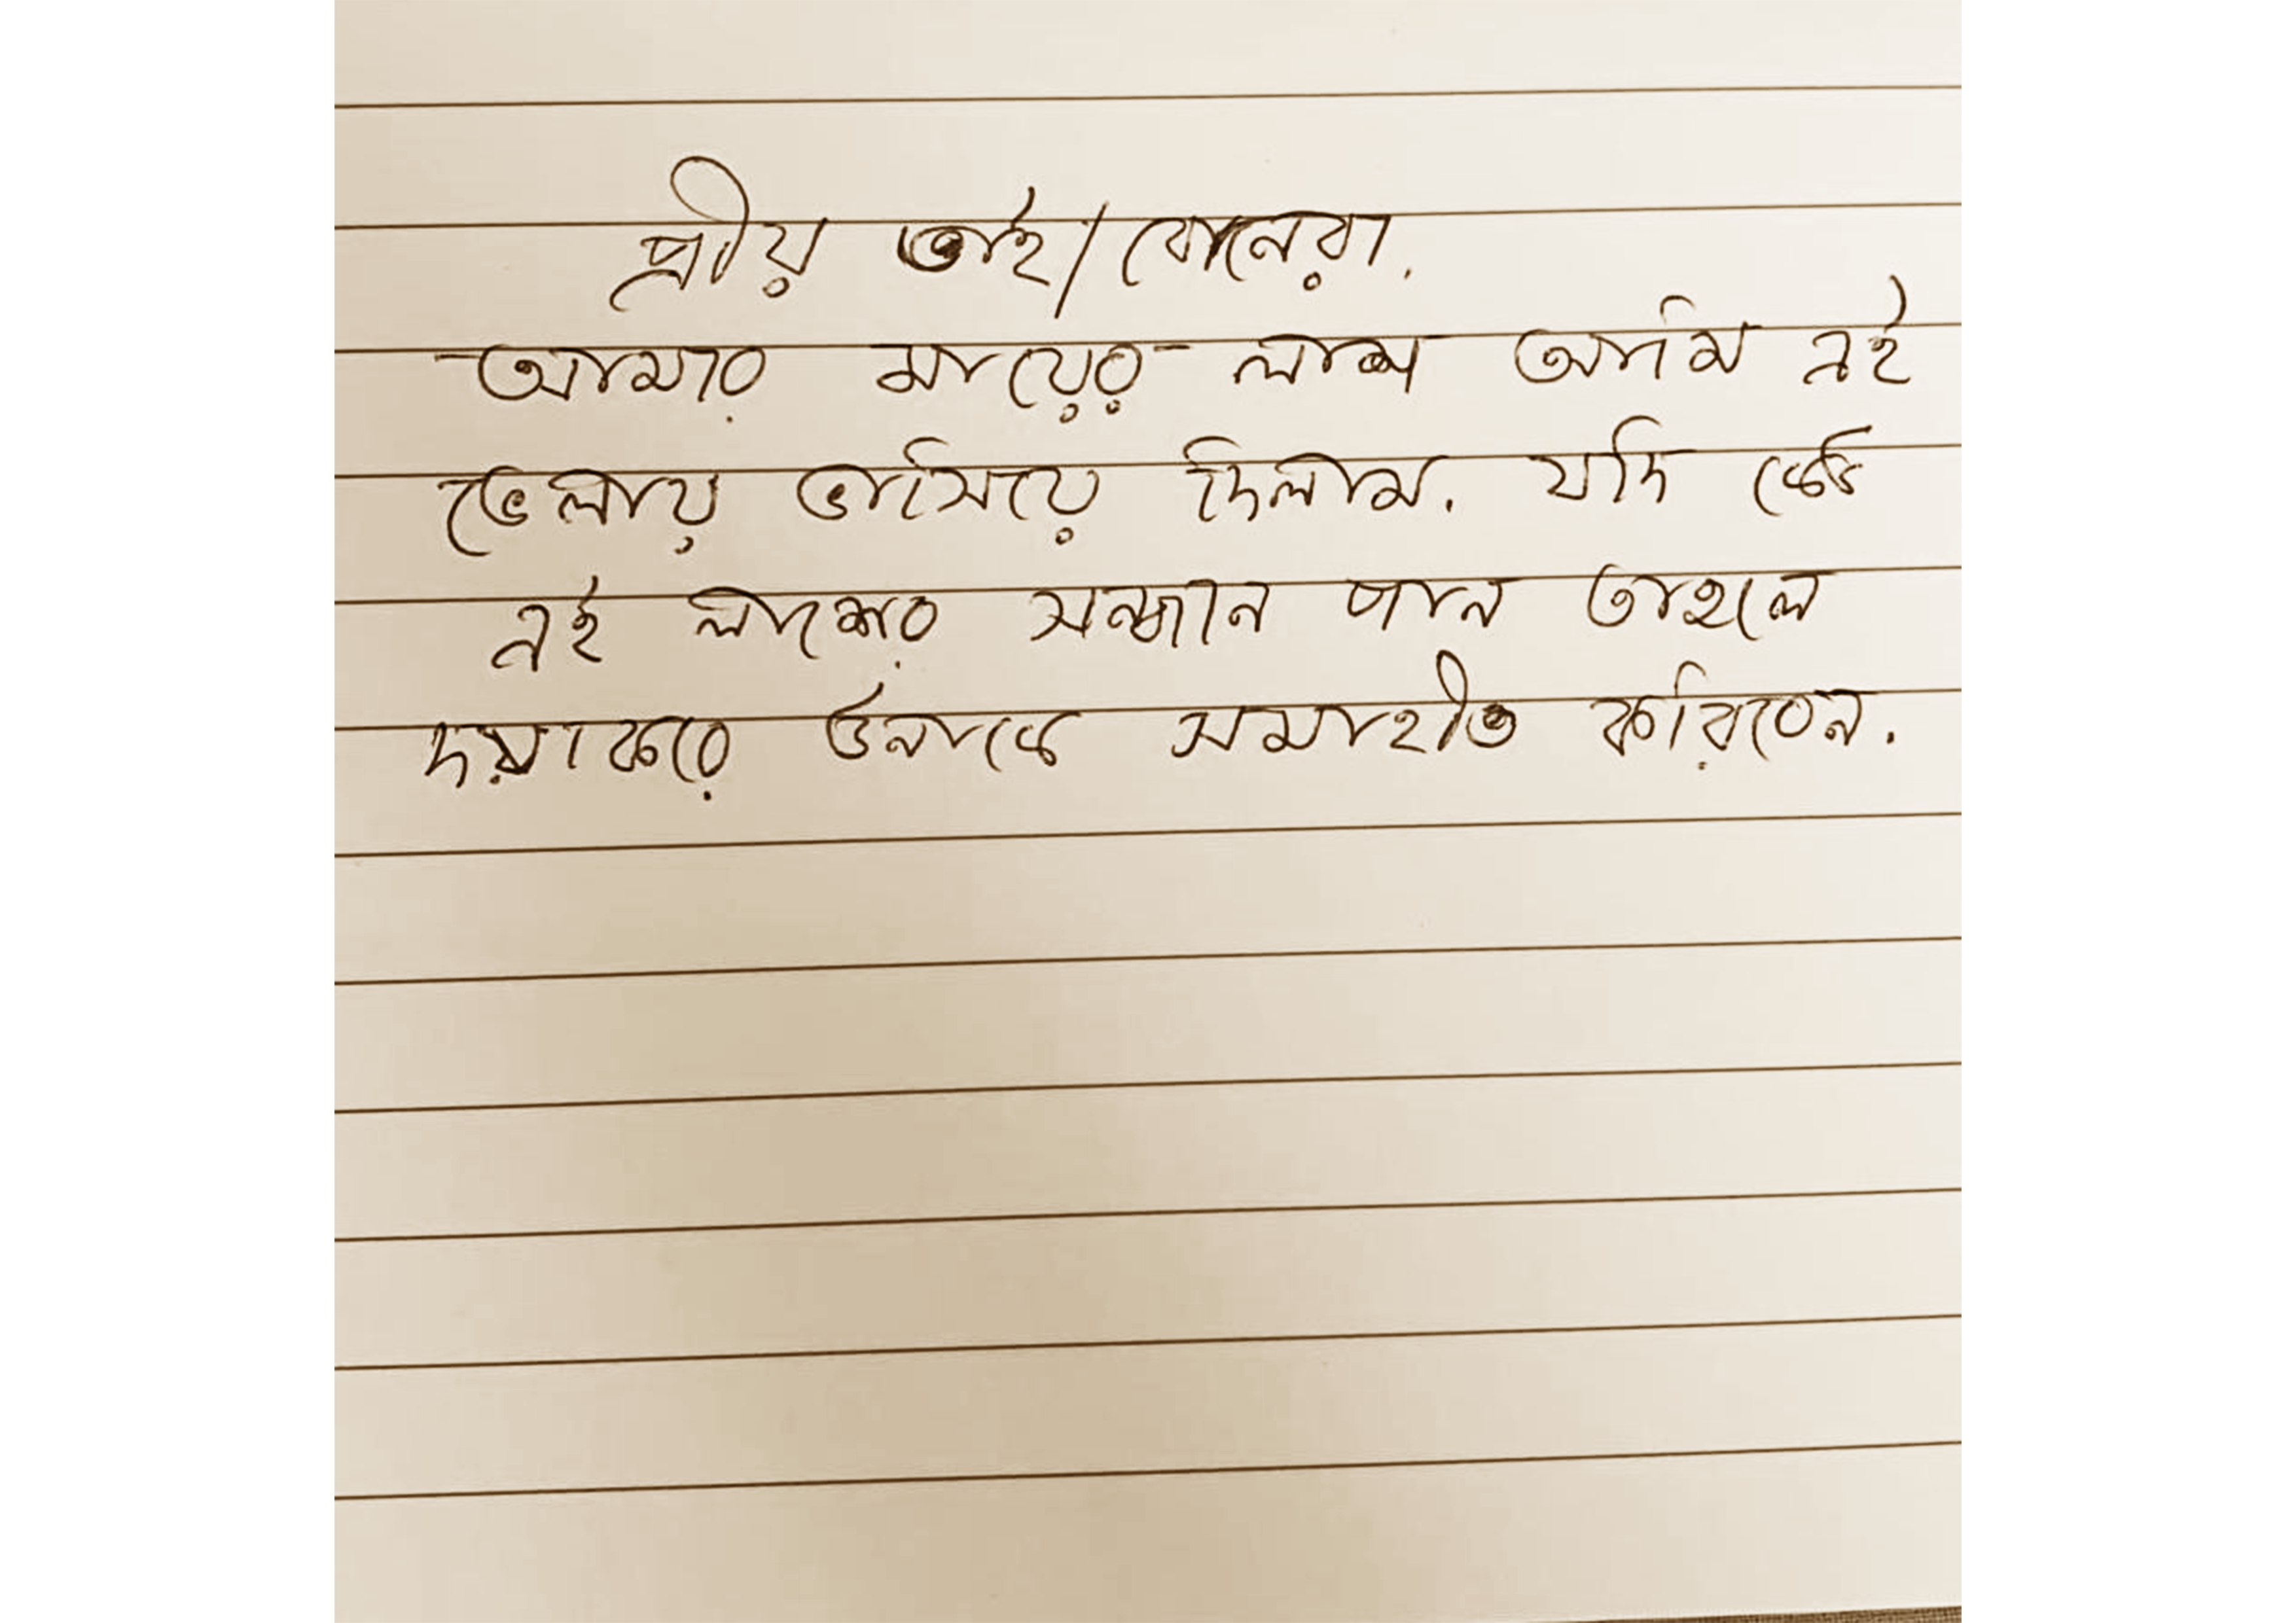 প্রীয় ভাই/বোনেরা.
আমার মায়ের লাশ আমি এই
ভেলায় ভাসিয়ে দিলাম. যদি কেউ
এই লাশের সন্ধান পান তাহলে
দয়া করে ওনাকে সমাহীত করিবেন.